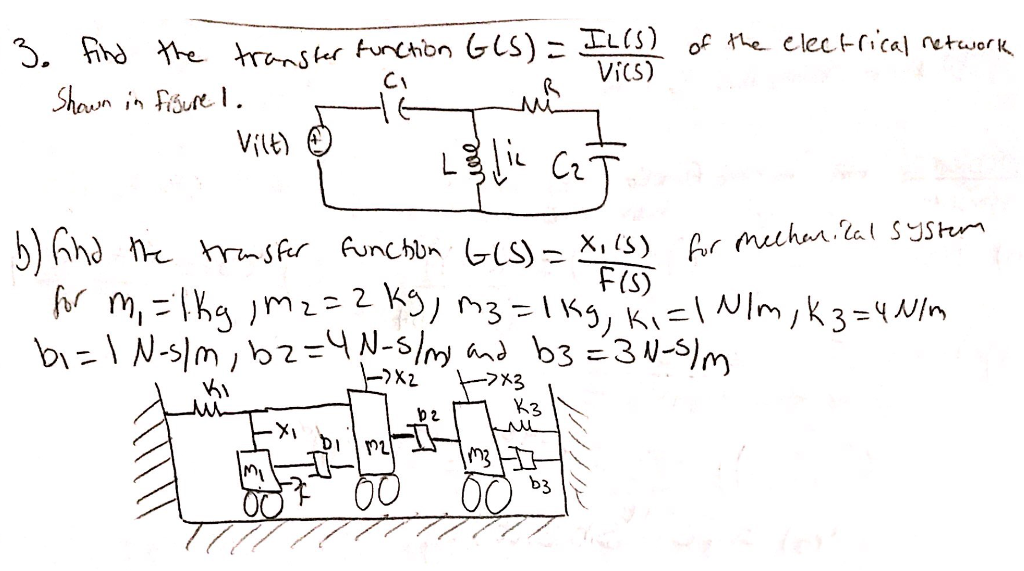 3. find the transfer function G(S) = IL(S) / Vi(S) of the electrical network
Shown in figure 1.
C1
R
Vi(t)
+
L
iL
C2
b) find the transfer function G(S) = X1(S) / F(S) for mechanical system
for m1 = 1kg, m2 = 2 kg, m3 = 1 kg, K1 = 1 N/m, K3 = 4 N/m
b1 = 1 N-s/m, b2 = 4 N-s/m and b3 = 3 N-s/m
K1
X1
→X2
→X3
K3
b2
b1
m2
m1
m3
F
b3